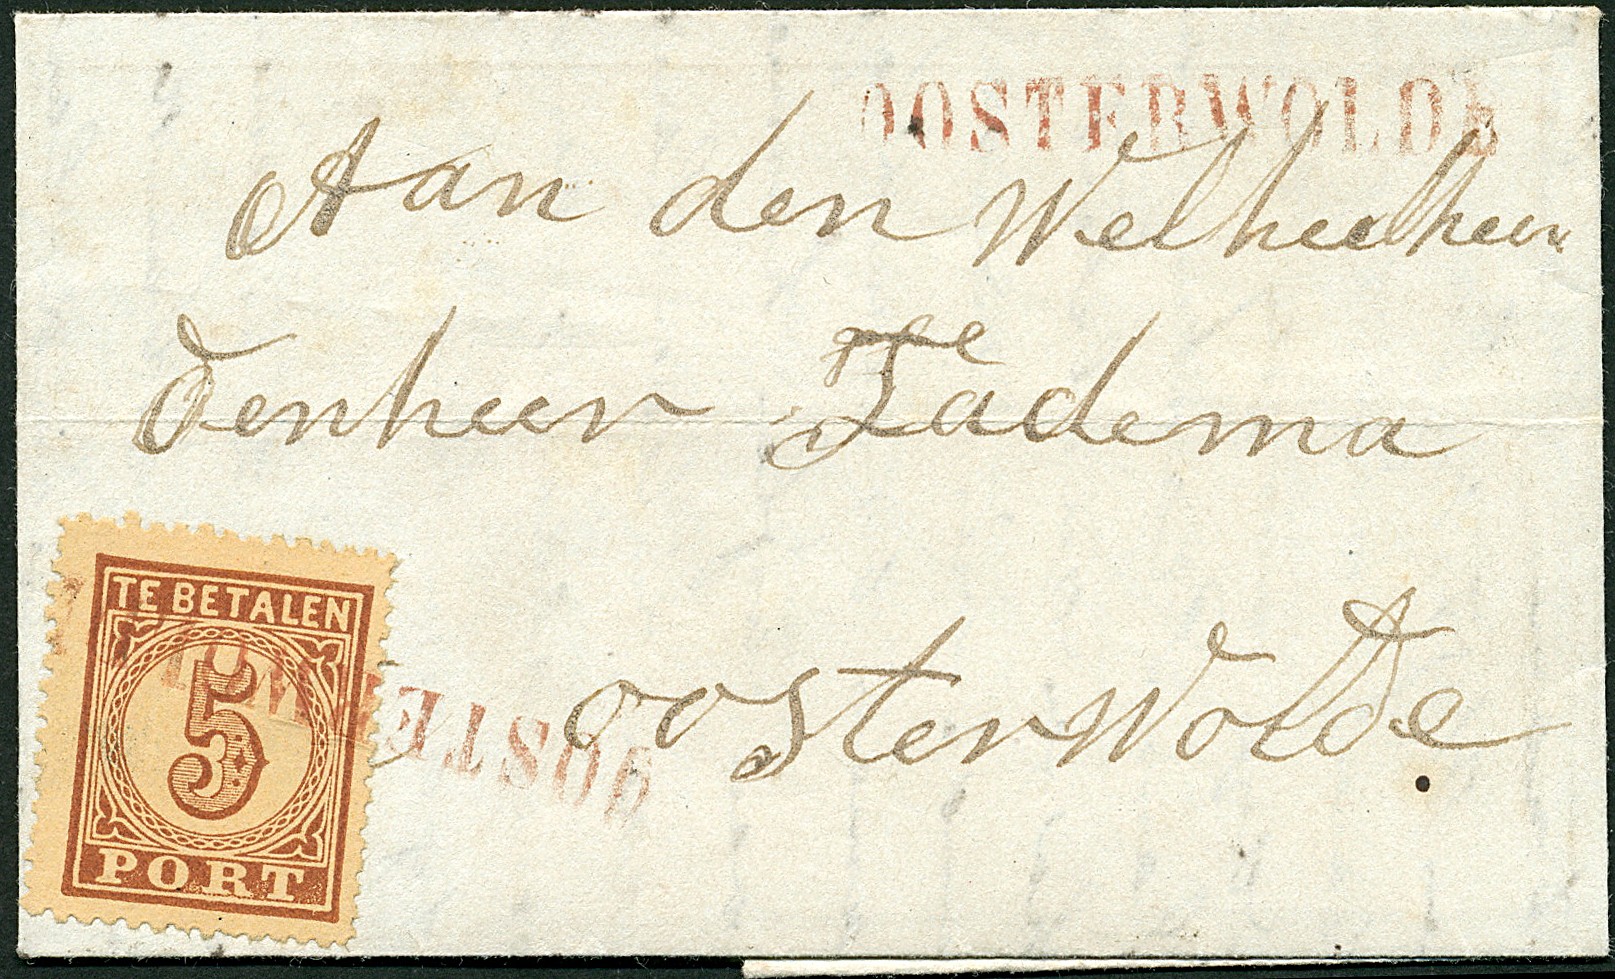 OOSTERWOLDE
Aan den Welheelheer
denheer Tadema
oosterwolde
TE BETALEN
5
PORT
OOSTERWOL